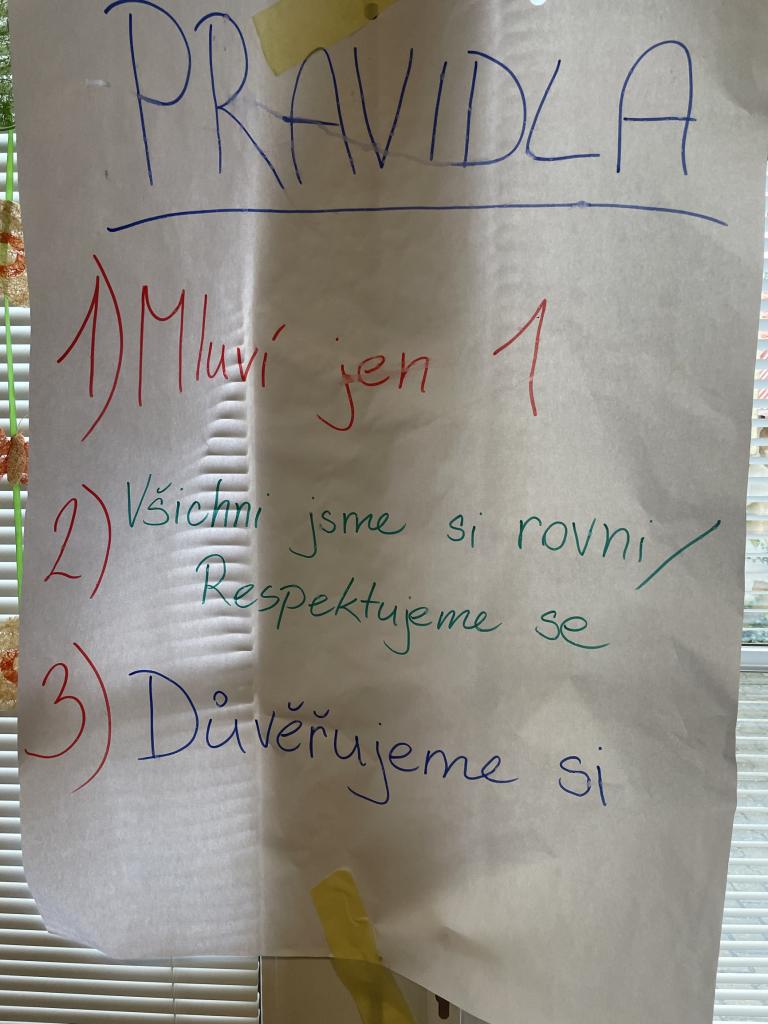 PRAVIDLA
1) Mluví jen 1
2) Všichni jsme si rovni/
Respektujeme se
3) Důvěřujeme si